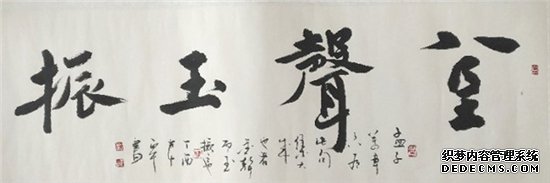 金聲玉振
孟子
萬章
下有
此句
集大
成
也者
金聲
而玉
振
丁酉
织梦内容管理系统
DEDECMS.COM